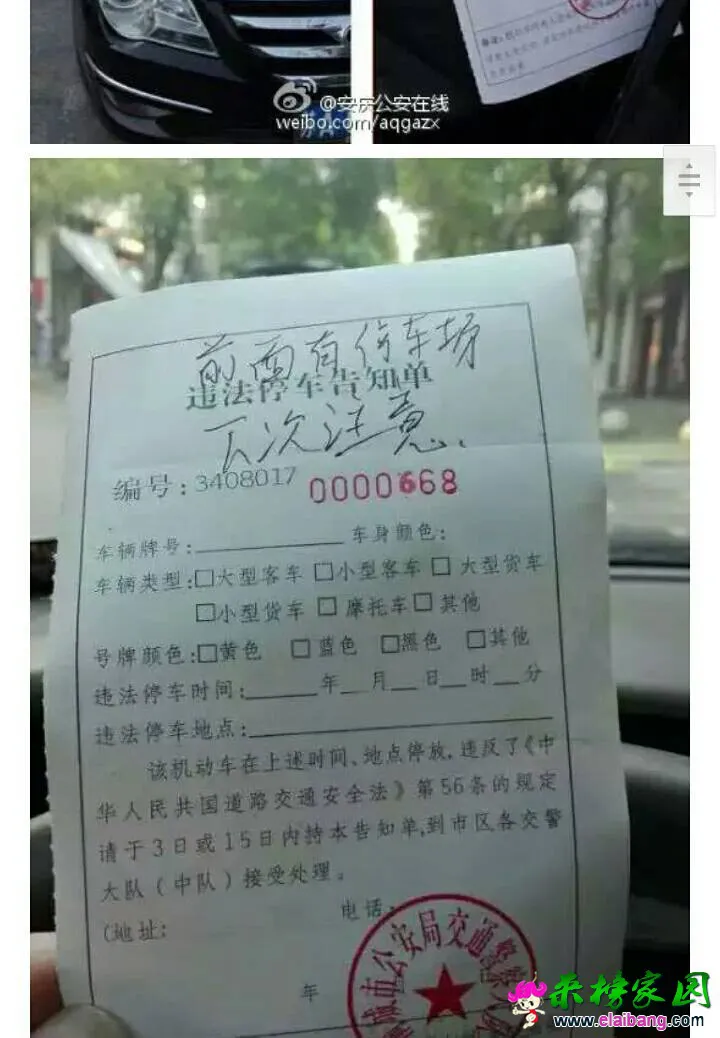 @安庆公安在线
weibo.com/aqgazx
前面有停车场
违法停车告知单
下次注意、
编号:3408017 0000668
车辆牌号: 车身颜色:
车辆类型:□大型客车 □小型客车 □ 大型货车
□小型货车 □ 摩托车□ 其他
号牌颜色:□黄色 □ 蓝色 □黑色 □其他
违法停车时间:______年__月__日__时__分
违法停车地点:
该机动车在上述时间、地点停放,违反了《中
华人民共国道路交通安全法》第56条的规定
请于3日或15日内持本告知单,到市区各交警
大队(中队)接受处理。
电话:
(地址:
年
城市公安局交通警察
来榜家园
www.elaibang.com